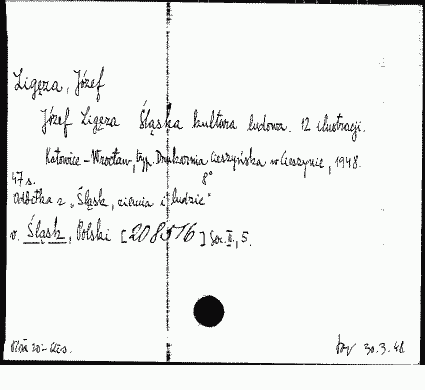 Ligęza, Józef
Józef Ligęza Śląska kultura ludowa. 12 ilustracji.
Katowice - Wrocław, typ. Drukarnia Cieszyńska w Cieszynie, 1948.
47 s. 8°
Odbitka z "Śląsk, ziemia i ludzie"
v. Śląsk, Polski [208516] Ser. II, 5.
30.3.48